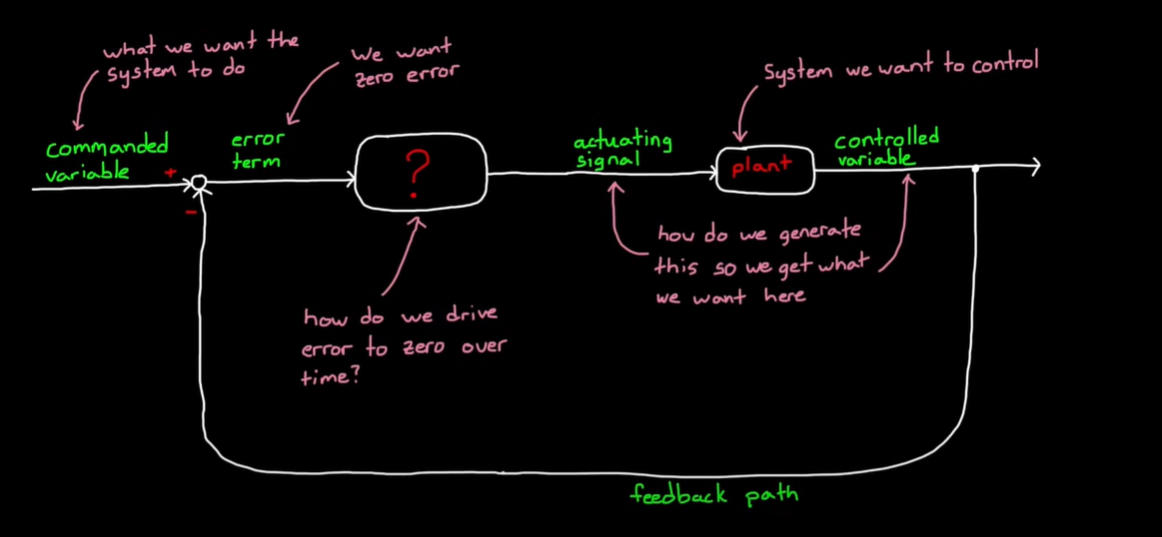 what we want the
system to do
We want
zero error
System we want to control
commanded
variable
+
-
error
term
?
actuating
signal
plant
controlled
variable
how do we generate
this so we get what
we want here
how do we drive
error to zero over
time?
feedback path